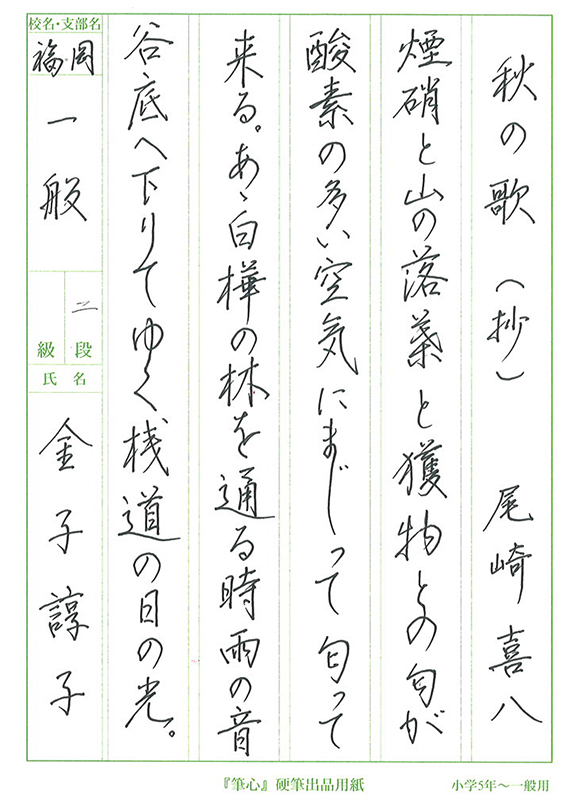 秋の歌（抄）　尾崎喜八
煙硝と山の落葉と獲物との匂が
酸素の多い空気にまじって匂って
来る。あゝ白樺の林を通る時雨の音
谷底へ下りてゆく桟道の日の光。
校名・支部名
福岡
一般
二段
級
氏名
金子諄子
『筆心』硬筆出品用紙
小学5年～一般用